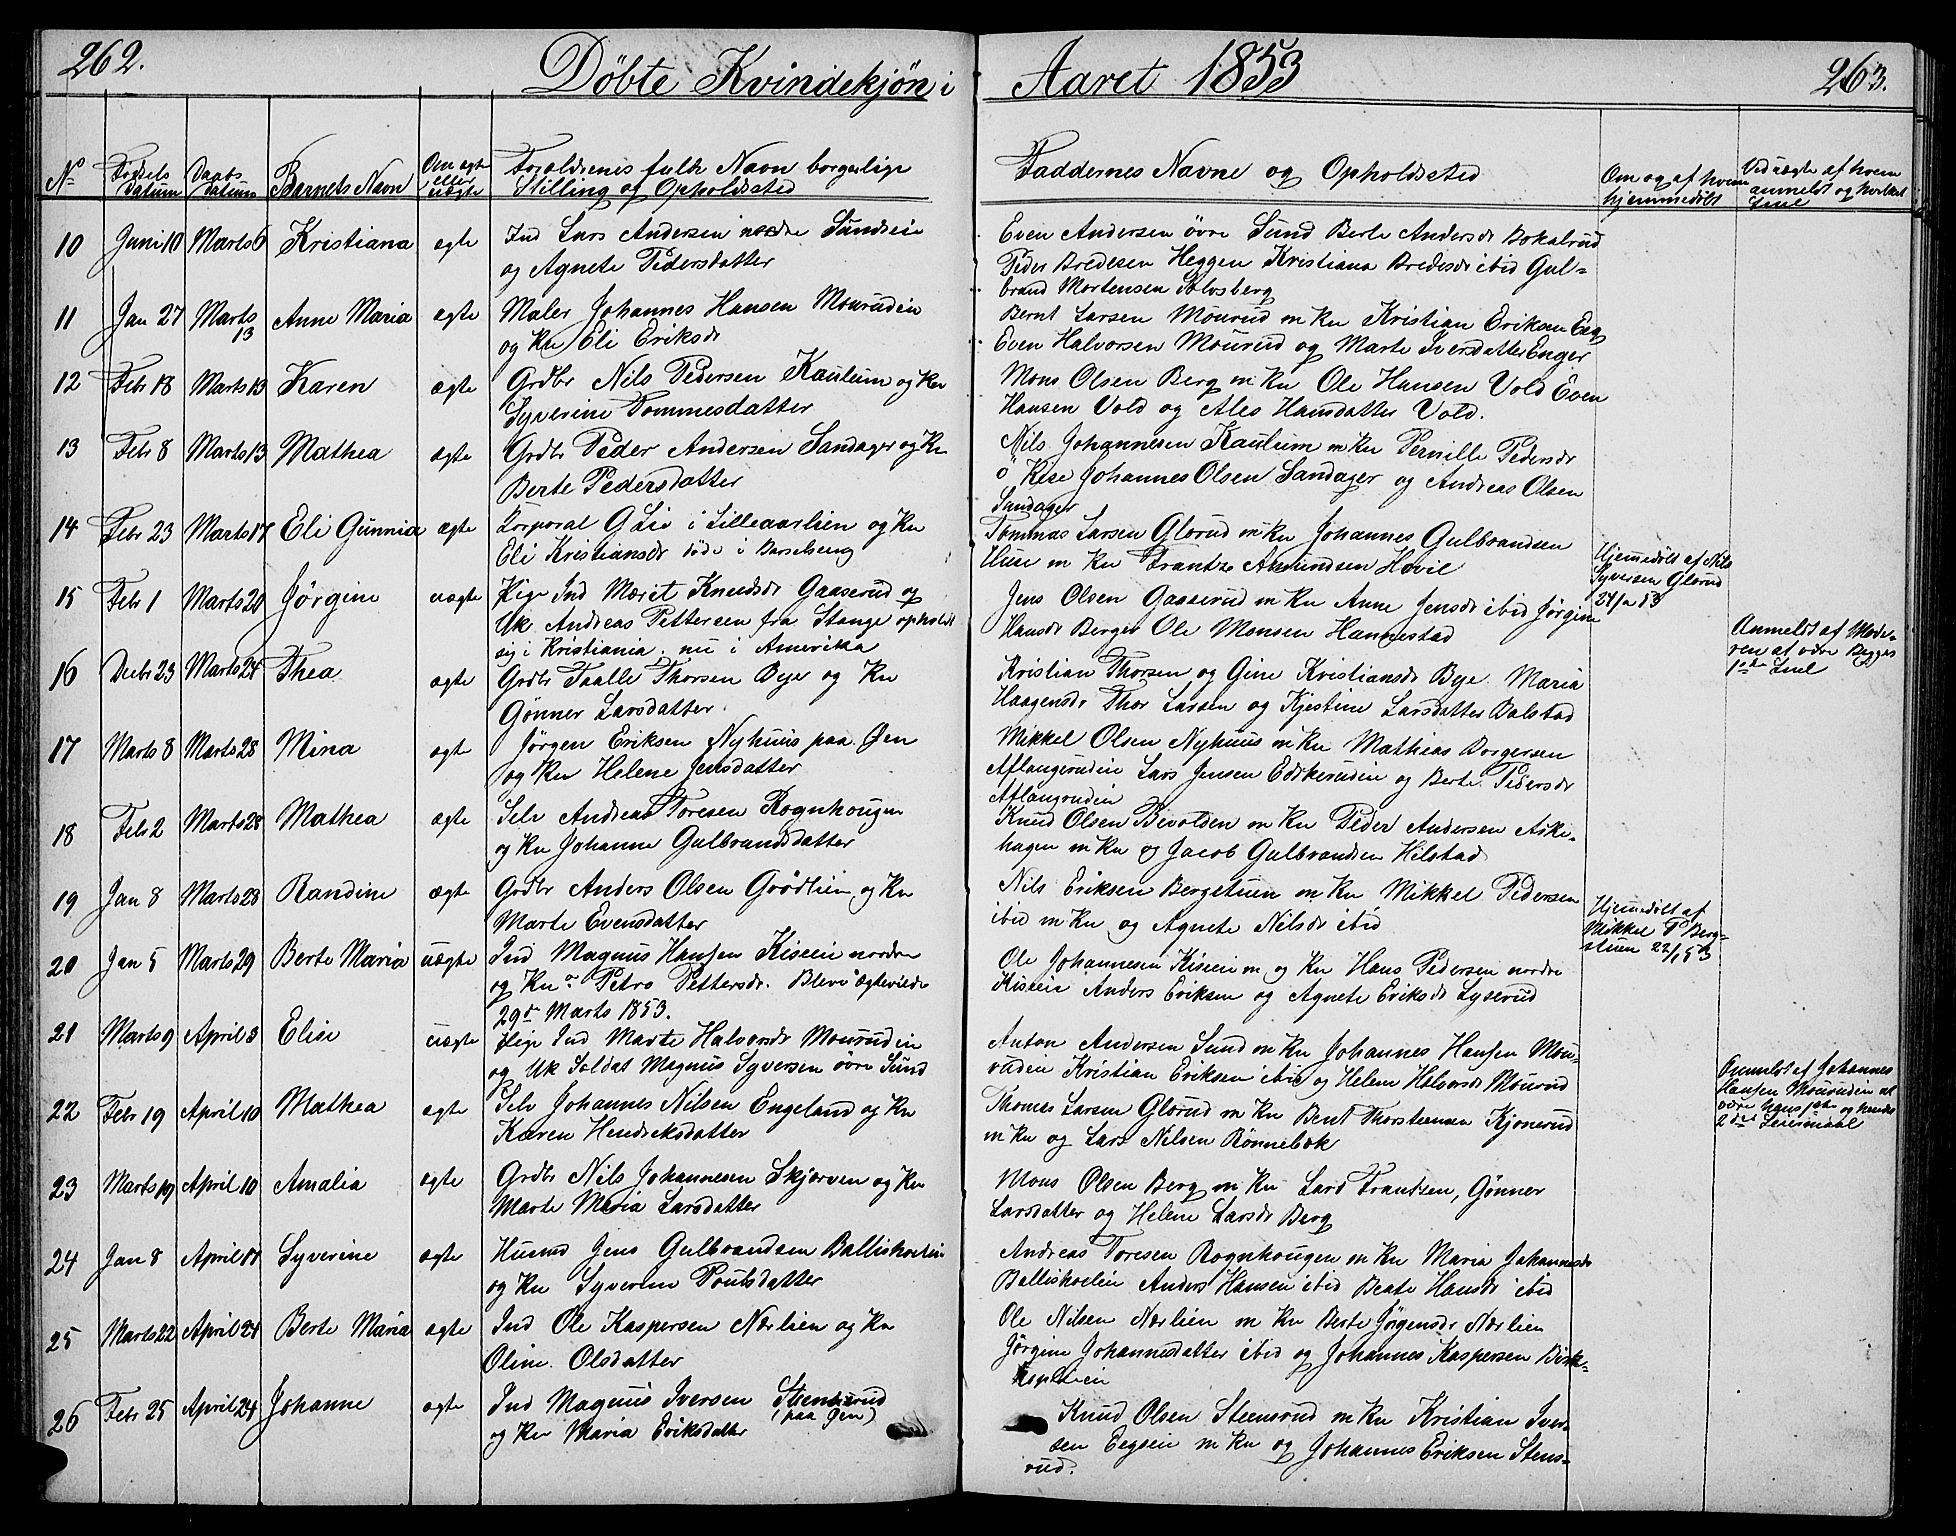 262.
Döbte Kvindekjön i
Aaret 1853
263.
No
Födsels Datum
Daabs Datum
Barnets Navn
Om ægte eller uægte
Foraldrenes fulde Navn borgerlige
Stilling og Opholdssted
Faddernes Navne og Opholdssted
Om og af hvem
hjemmedöbt
Ved uægte af hvem
anmeldt og hvilket
10 Juni 10 Marts 6 Kristiana ægte Ind Lars Andersen nordre Sundeie
og Agnete Pedersdatter
Even Andersen övre Sund Berte Andersdr Bokalrud
Peder Bredesen Heggen Kristiana Bredesdr ibid Gul-
brand Mortensen Solosberg
11 Jan 27 Marts 13 Anne Maria ægte Maler Johannes Hansen Mourudeie
og Kn Eli Eriksdr
Bernt Larsen Mourud m Kn Kristian Eriksen Eeg
Even Halvorsen Mourud og Marte Iversdatter Enger
12 Febr 18 Marts 13 Karen ægte Grdbr Nils Pedersen Kaulum og Kn
Syverine Tommesdatter
Mons Olsen Berg m Kn Ole Hansen Vold Even
Hansen Vold og Ales Hansdatter Vold.
13 Febr 8 Marts 13 Mathea ægte Grdbr Peder Andersen Sandager og Kn
Berte Pedersdatter
Nils Johannesen Kaulum m Kn Pernille Pedersdr
ö Kese Johannes Olsen Sandager og Andreas Olsen
Sandager
14 Febr 23 Marts 17 Eli Gunnia ægte Korporal G Lie i Lilleaarlien og Kn
Eli Kristiansdr döde i Barselseng
Tommas Larsen Glorud m Kn Johannes Gulbrandsen
Huse m Kn Frantze Amundsen Hovie
Hjemedöbt af Nils
Syversen Glorud
15 Febr 1 Marts 20 Jörgine uægte Pige Ind Mæret Knudsdr Gaaserud og
Uk Andreas Pettersen fra Stange opholdt
sig i Kristiania, nu i Amerikka
Jens Olsen Gaaserud m Kn Anne Jensdr ibid Jörgine
Hansdr Berger Ole Monsen Hannestad
Anmeldt af Mode-
ren at være Begges
1ste
16 Decbr 23 Marts 24 Thea ægte Grdbr Taalle Thorsen Bye og Kn
Gönner Larsdatter
Kristian Thorsen og Gine Kristiansdr Bye Maria
Haagensdr Thor Larsen og Kjestine Larsdatter Bolstad
17 Marts 8 Marts 28 Mina ægte Jörgen Eriksen Nyhuus paa Öen
og Kn Helene Jensdatter
Mikkel Olsen Nyhuus m Kn Mathias Borgersen
Aflangerudeie Lars Jensen Edikerudeie og Berte Pedersdr
Aflangrudeie
18 Febr 2 Marts 28 Mathea ægte Selv Andreas Toresen Rognhougen
og Kn Johanne Gulbrandsdatter
Knud Olsen Bivolden m Kn Peder Andersen Aske-
hagen m Kn og Jacob Gulbrandsen Hilstad
19 Jan 8 Marts 28 Randine ægte Grdbr Anders Olsen Grödlien og Kn
Marte Evensdatter
Nils Eriksen Bergstuen m Kn Mikkel Pedersen
ibid m Kn og Agnete Nilsdr ibid
Hjemedöbt af
Mikkel P Berg-
stuen 22/1 53
20 Jan 5 Marts 29 Berte Maria uægte Ind Magnus Hansen Kiseeie nordre
og Kn Petra Pettersdr. Bleve ægteviede
29de Marts 1853.
Ole Johannesen Kiseeie m og Kn Hans Pedersen nordre
Kiseeie Anders Eriksen og Agnete Eriksdr Lyserud
21 Marts 9 April 3 Elise uægte Pige Ind Marte Halvorsdr Mourudeie
og Uk Soldat Magnus Syversen övre Sund
Anton Andersen Sund m Kn Johannes Hansen Mou-
rudeie Kristian Eriksen ibid og Helene Halvorsdr Mourud
Anmeldt af Johannes
Hansen Mourudeie at
være hans 1ste og hendes
2det Leiermaal
22 Febr 19 April 10 Mathea ægte Selv Johannes Nilsen Engelund og Kn
Karen Hendriksdatter
Thomas Larsen Glorud m Kn Bent Thorstensen Kjonerud
m Kn og Lars Nilsen Rönnebok
23 Marts 19 April 10 Amalia ægte Grdbr Nils Johannesen Skjerven og Kn
Marte Maria Larsdatter
Mons Olsen Berg m Kn Lars Frantsen, Gönner
Larsdatter og Helene Larsdr Berg
24 Jan 8 April 17 Syverine ægte Husmd Jens Gulbrandsen Balliskoeleie
og Kn Syverine Poulsdatter
Andreas Toresen Rognhougen m Kn Maria Johannesdr
Balliskoelein Anders Hansen ibid Beate Hansdr ibid
25 Marts 22 April 24 Berte Maria ægte Ind Ole Kaspersen Nærlien og Kn
Oline Olsdatter
Ole Nilsen Nærlien m Kn Berte Jörgensdr Nærlien
Jörgine Johannesdatter ibid og Johannes Kaspersen Birk-
26 Febr 25 April 24 Johanne ægte Ind Magnus Iversen Steensrud
(paa Öen)
og Kn Maria Eriksdatter
Knud Olsen Steensrud m Kn Kristian Iver-
sen Eegeeie m Kn og Johannes Eriksen Stens-
rud.